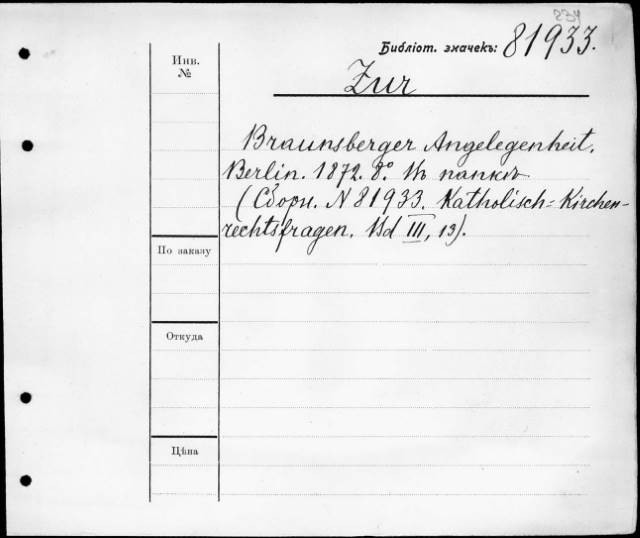 Библіот. значекъ: 81933.
Инв.
№
Zur
Braunsberger Angelegenheit.
Berlin. 1872. 8° Въ папкѣ
(Сборн. N 81933. Katholisch-Kirchen-
rechtsfragen. Bd III, 13).
По заказу
Откуда
Цѣна